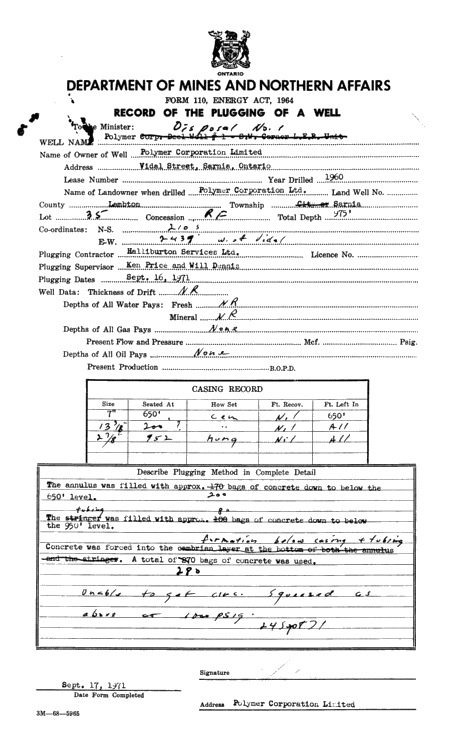 ONTARIO
DEPARTMENT OF MINES AND NORTHERN AFFAIRS
FORM 110, ENERGY ACT, 1964
RECORD OF THE PLUGGING OF A WELL
To the Minister: Disposal No. 1
WELL NAME Polymer Corp. Deel Well # 1 - S.W. Corner L.E.R. Unit
Name of Owner of Well Polymer Corporation Limited
Address Vidal Street, Sarnia, Ontario
Lease Number Year Drilled 1960
Name of Landowner when drilled Polymer Corporation Ltd. Land Well No.
County Lambton Township City or Sarnia
Lot 35 Concession RF Total Depth 975'
Co-ordinates: N-S. 210 S
E-W. 2439' W. of Vidal
Plugging Contractor Halliburton Services Ltd. Licence No.
Plugging Supervisor Ken Price and Will Dennis
Plugging Dates Sept. 16, 1971
Well Data: Thickness of Drift NR
Depths of All Water Pays: Fresh NR
Mineral NR
Depths of All Gas Pays None
Present Flow and Pressure Mcf. Psig.
Depths of All Oil Pays None
Present Production B.O.P.D.
CASING RECORD
Size Seated At How Set Ft. Recov. Ft. Left In
7" 650' Cem Nil 650'
13 3/8" 200 ? " Nil All
2 7/8" 952 hung Nil All
Describe Plugging Method in Complete Detail
The annulus was filled with approx. 170 bags of concrete down to below the
200
650' level.
tubing 80
The stringer was filled with approx. 100 bags of concrete down to below
the 950' level.
formation below casing + tubing
Concrete was forced into the cambrian layer at the bottom of both the annulus
and the stringer. A total of 270 bags of concrete was used.
280
Unable to get circ. Squeezed as
above at 1000 psig.
24 Sept 71
Signature
Sept. 17, 1971
Date Form Completed
Address Polymer Corporation Limited
3M—68—5965